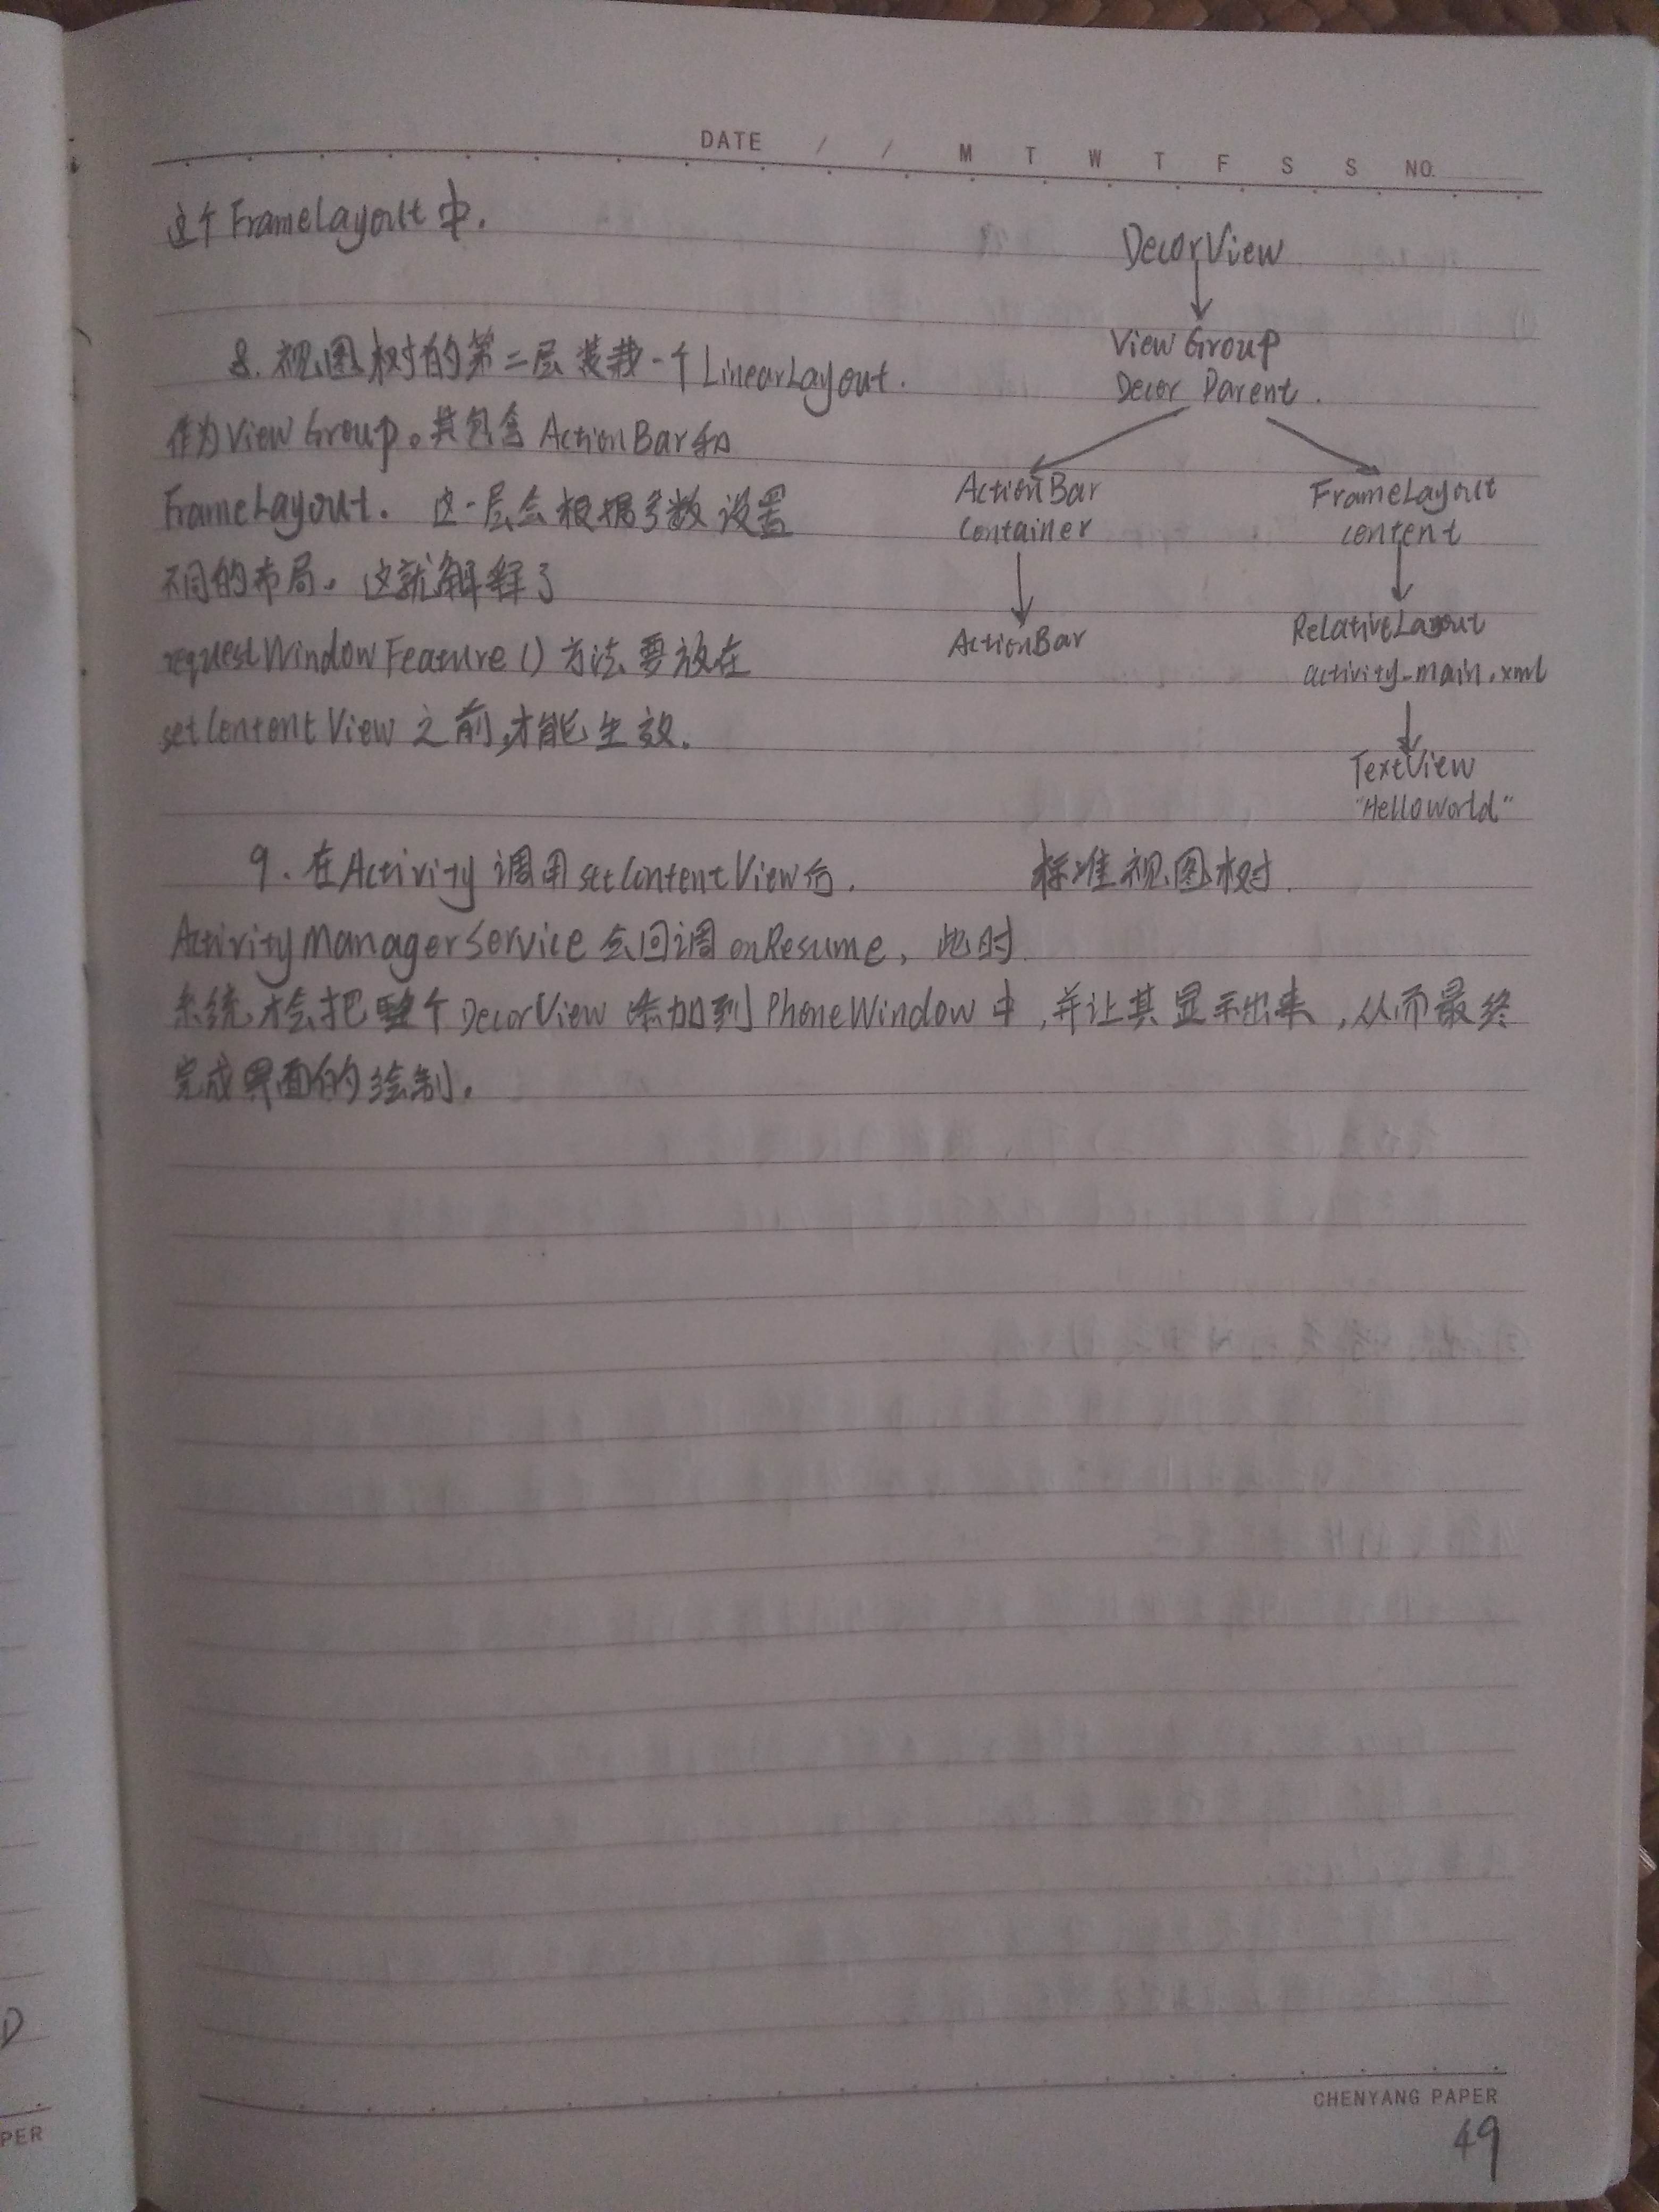 DATE / / M T W T F S S NO.
这个FrameLayout中.
8. 视图树的第二层装载一个LinearLayout.
作为ViewGroup。其包含ActionBar和
FrameLayout. 这一层会根据参数设置
不同的布局。这就解释了
requestWindowFeature()方法要放在
setContentView之前,才能生效.
DecorView
ViewGroup
Decor Parent.
ActionBar
Container
FrameLayout
content
ActionBar
RelativeLayout
activity_main.xml
TextView
"Helloworld"
标准视图树.
9. 在Activity调用setContentView后.
ActivityManagerService会回调onResume, 此时
系统才会把整个DecorView添加到PhoneWindow中,并让其显示出来,从而最终
完成界面的绘制.
CHENYANG PAPER
49
D
PER